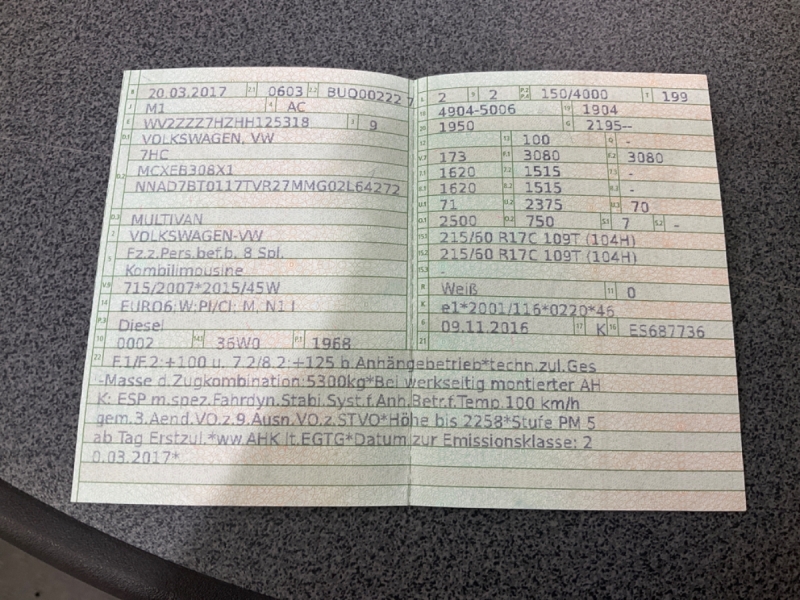 B 20.03.2017 2.1 0603 2.2 BUO00222 7
J M1 4 AC
E WV2ZZZ7HZHH125318 3 9
D.1 VOLKSWAGEN, VW
7HC
D.2 MCXEB308X1
NNAD7BT0117TVR27MMG02L64272
D.3 MULTIVAN
2 VOLKSWAGEN-VW
5 Fz.z.Pers.bef.b. 8 Spl.
Kombilimousine
V.9 715/2007*2015/45W
14 EURO6;W;PI/CI; M, N1 I
P.3 Diesel
10 0002 14.1 36W0 P.1 1968
L 2 9 2 P.2 P.4 150/4000 T 199
18 4904-5006 19 1904
20 1950 G 2195--
12 - 13 100 Q -
V.7 173 F.1 3080 F.2 3080
7.1 1620 7.2 1515 7.3 -
8.1 1620 8.2 1515 8.3 -
U.1 71 U.2 2375 U.3 70
O.1 2500 O.2 750 S.1 7 S.2 -
15.1 215/60 R17C 109T (104H)
15.2 215/60 R17C 109T (104H)
15.3 -
R Weiß 11 0
K e1*2001/116*0220*46
6 09.11.2016 17 K 16 ES687736
21
22 F.1/F.2:+100 u. 7.2/8.2:+125 b.Anhängebetrieb*techn.zul.Ges
-Masse d.Zugkombination:5300kg*Bei werkseitig montierter AH
K: ESP m.spez.Fahrdyn.Stabi.Syst.f.Anh.Betr.f.Temp.100 km/h
gem.3.Aend.VO.z.9.Ausn.VO.z.STVO*Höhe bis 2258*Stufe PM 5
ab Tag Erstzul.*ww.AHK lt.EGTG*Datum zur Emissionsklasse: 2
0.03.2017*